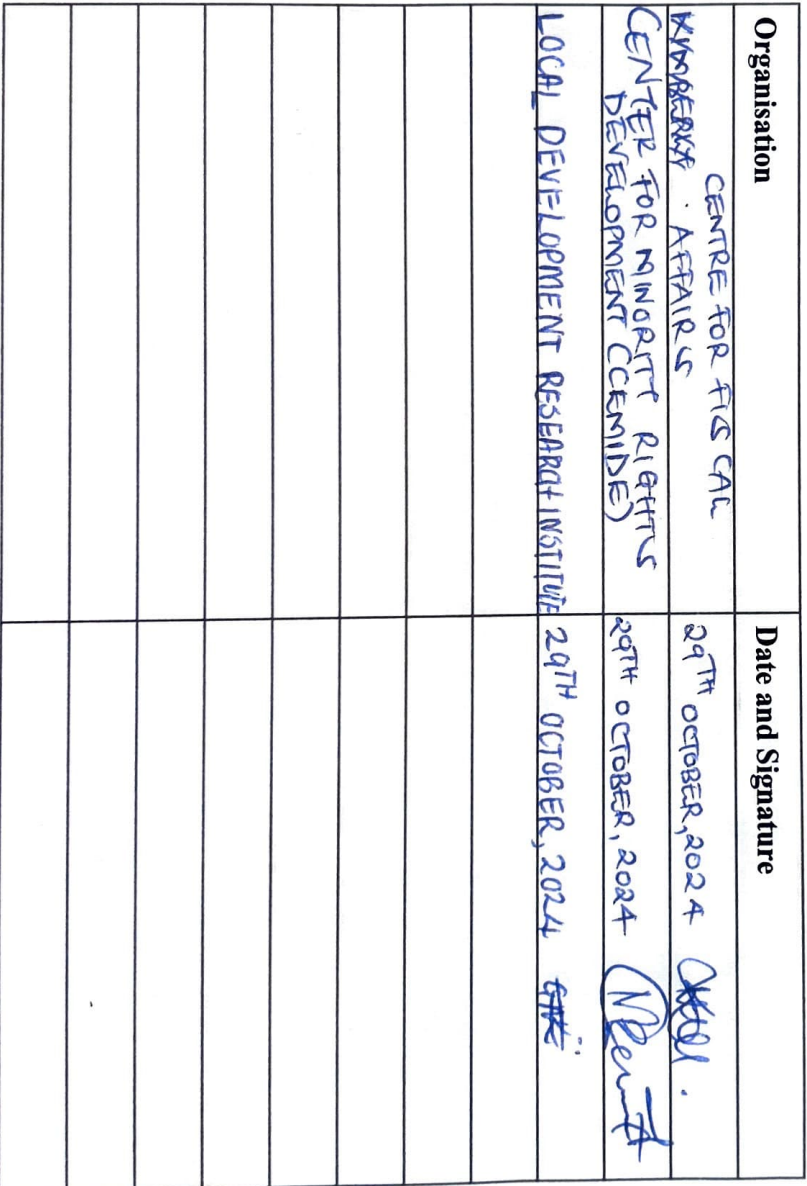 Organisation
Date and Signature
CENTRE FOR FISCAL
AFFAIRS
29TH OCTOBER, 2024
CENTER FOR MINORITY RIGHTS
DEVELOPMENT (CEMIDE)
29TH OCTOBER, 2024
LOCAL DEVELOPMENT RESEARCH INSTITUTE
29TH OCTOBER, 2024